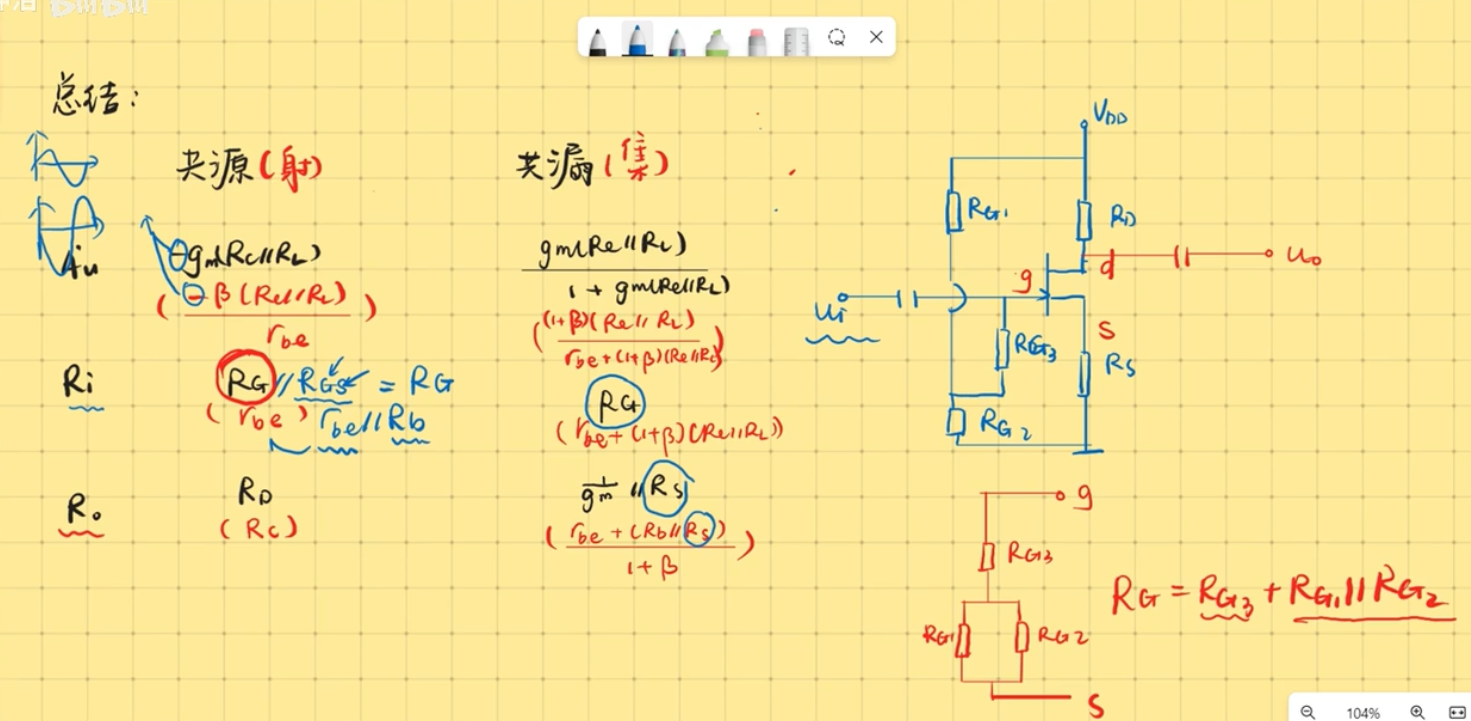 总结:
共源(射)
共漏(集)
Au
-gm(Rc//RL)
(-β(Rc//RL)/rbe)
gm(Re//RL)/1+gm(Re//RL)
((1+β)(Re//RL)/rbe+(1+β)(Re//RL))
Ri
RG//RGS=RG
(rbe) rbe//Rb
RG
(rbe+(1+β)(Re//RL))
Ro
RD
(Rc)
1/gm//RS
(rbe+(Rb//Rs)/1+β)
VDD
RG1
RD
d
uo
g
ui
s
RG3
RS
RG2
g
RG3
RG1
RG2
S
RG=RG3+RG1//RG2
104%